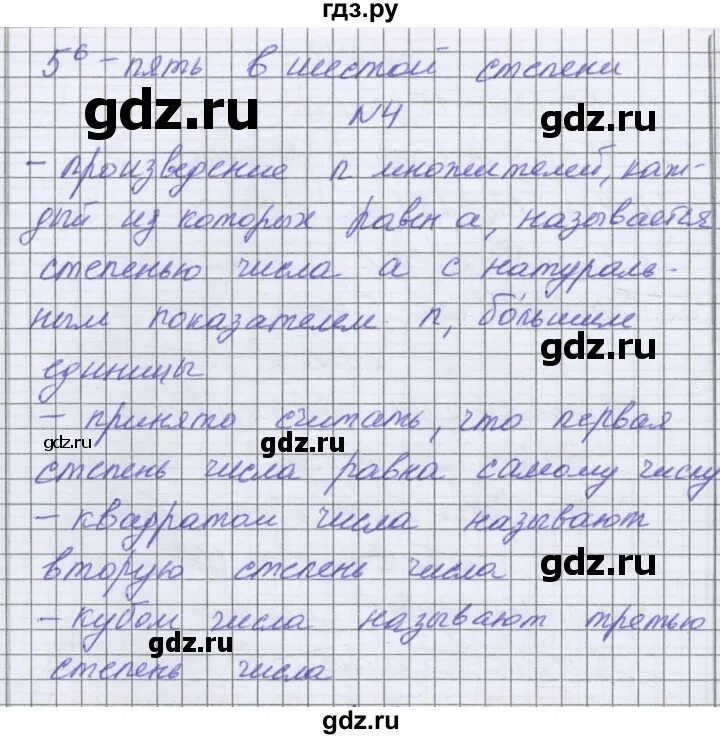 гдз.ру
5⁶ - пять в шестой степени
gdz.ru
№4
gdz.ru
- произведение n множителей, каж-
дый из которых равен а, называется
степенью числа а с натураль-
ным показателем n, бо́льшим
gdz.ru
единицы
- принято считать, что первая
gdz.ru
gdz.ru
степень числа равна самому числу
- квадратом числа называют
вторую степень числа
gdz.ru
- кубом числа называют третью
gdz.ru
степень числа
gdz.ru